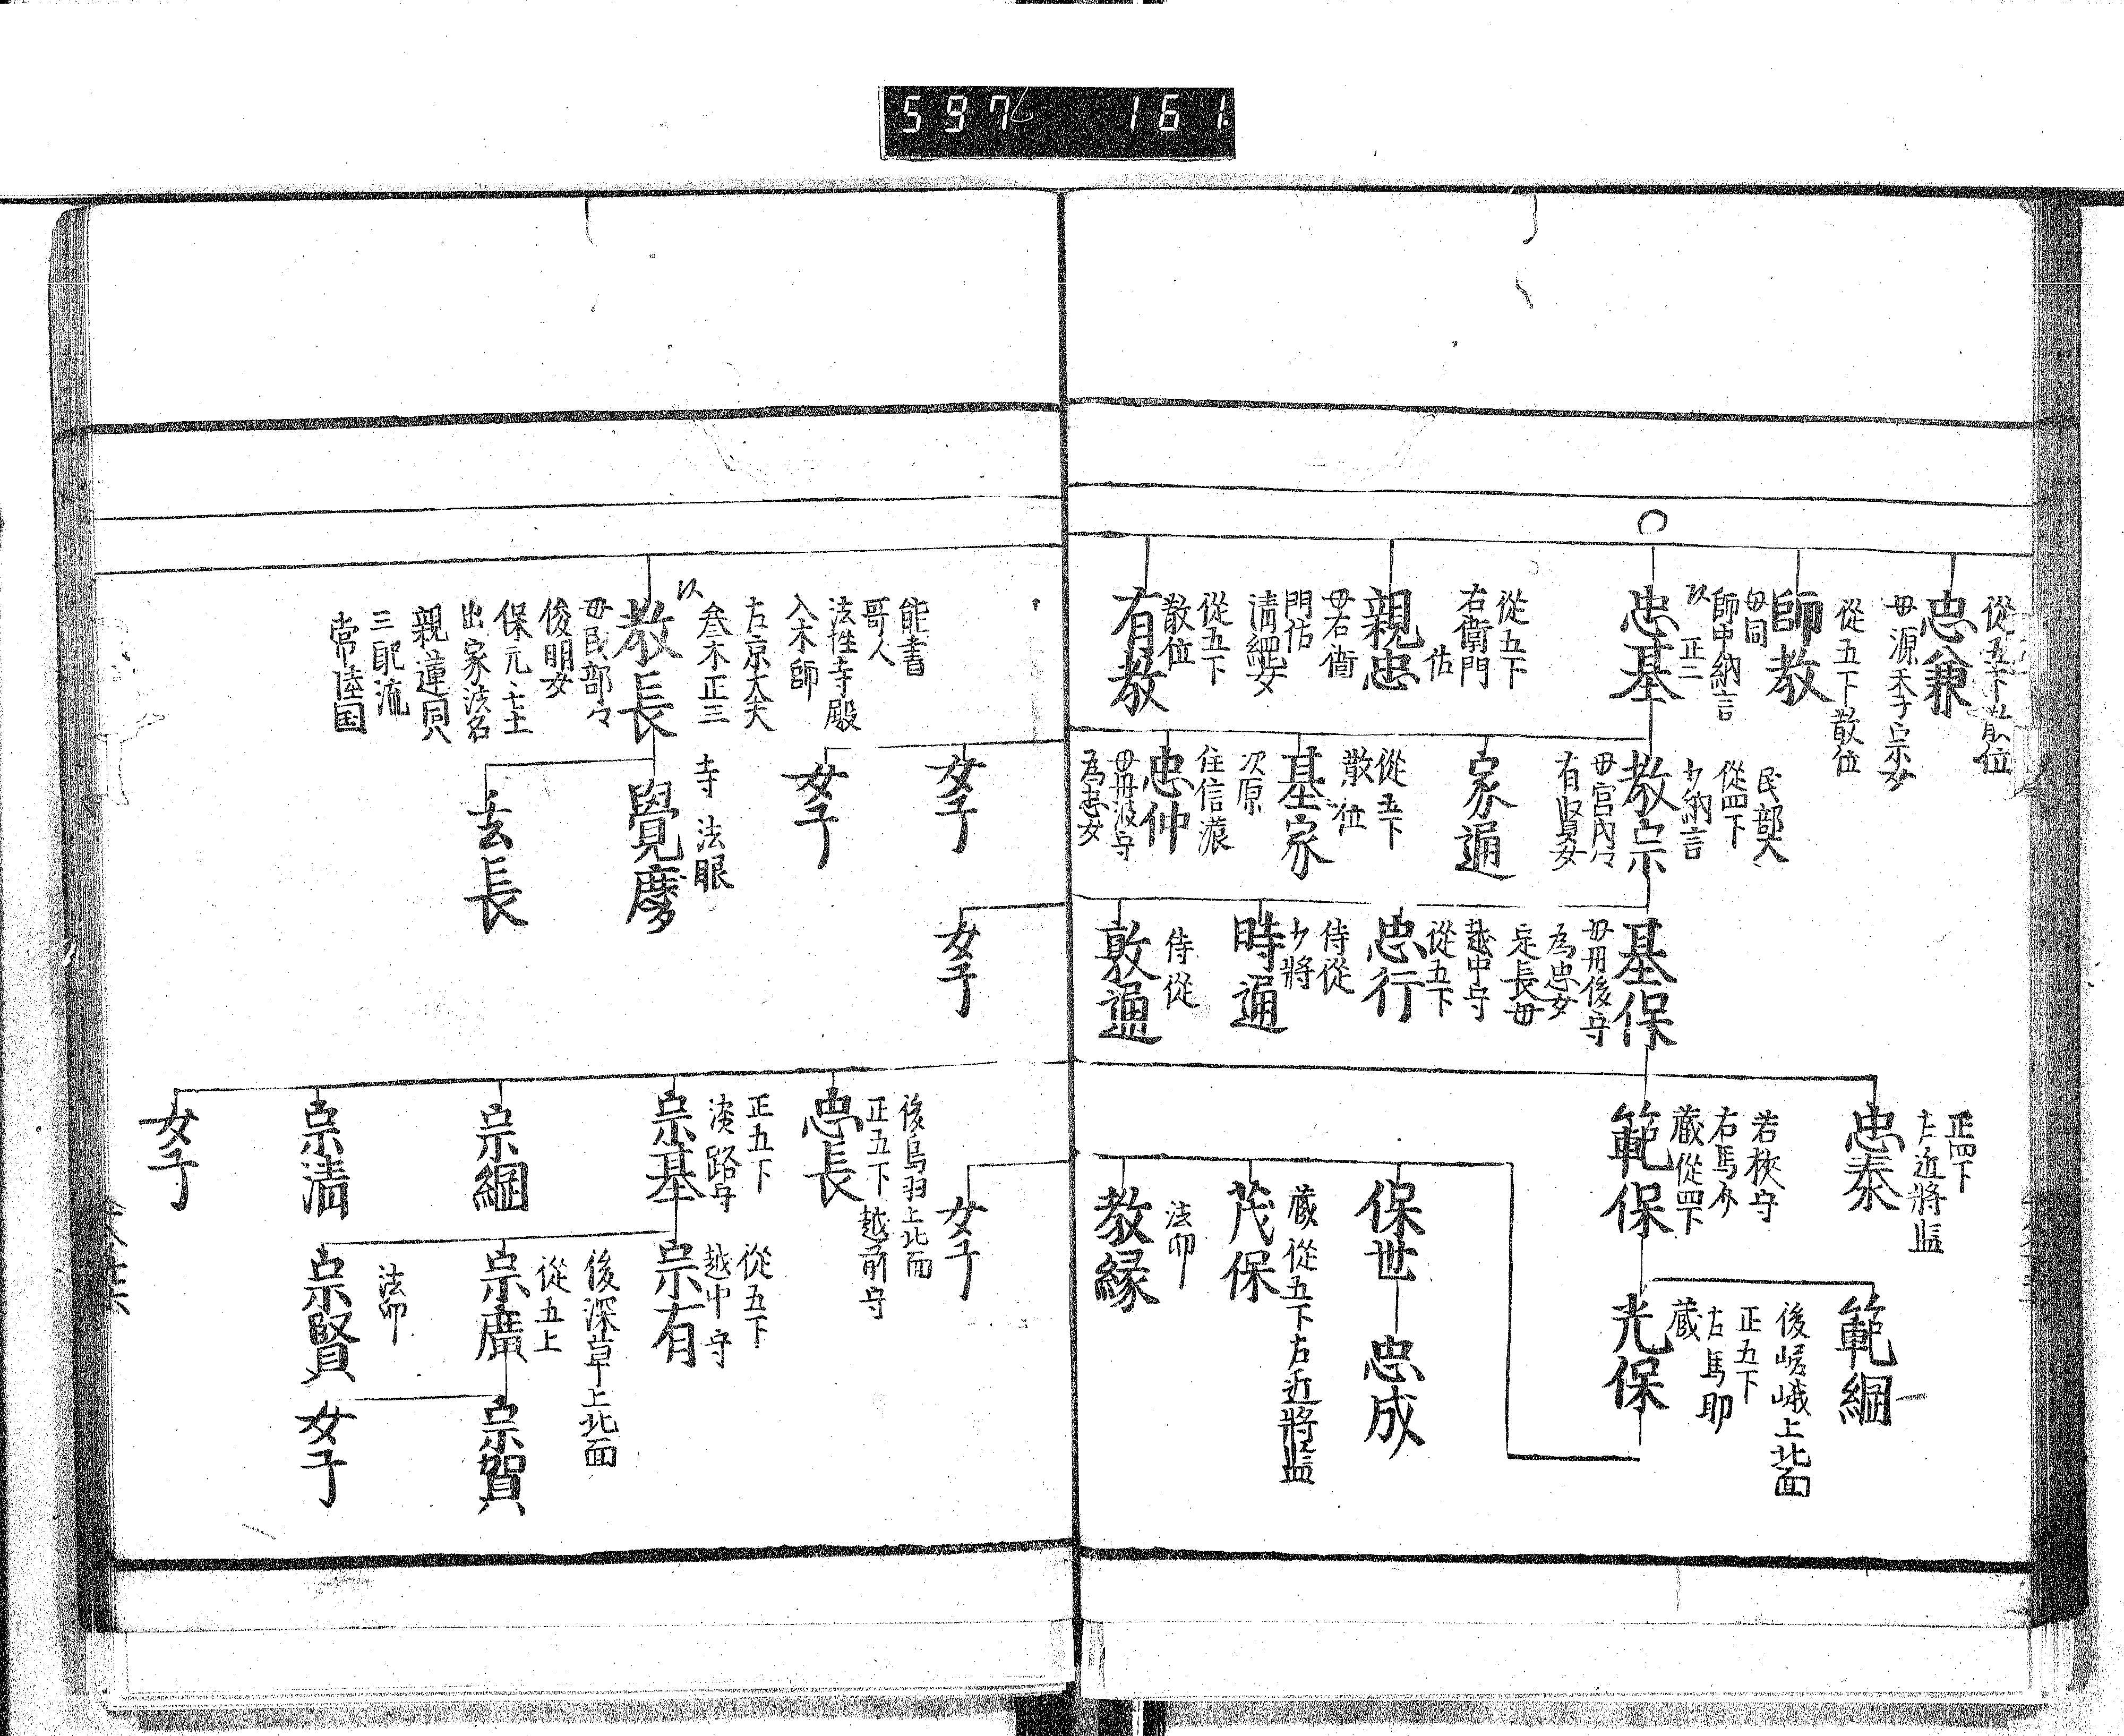 597 161
從五下散位
忠兼
母源季宗女
從五下散位
師教
母同
師中納言
正二
忠基
從五下
右衛門
佑
親忠
母右衛
門佑
清綱女
從五下
散位
有教
民部大
從四下
少納言
教宗
母宮内々
有賢女
家通
從五下
散位
基家
次原
住信濃
忠仲
母丹波守
為忠女
基保
母丹後守
為忠女
定長母
越中守
從五下
忠行
侍從
少將
時通
侍從
敦通
正四下
左近將監
忠泰
若狹守
右馬介
蔵從四下
範保
範綱
後嵯峨上北面
正五下
右馬助
蔵
光保
保世
忠成
蔵從五下右近將監
茂保
法印
教縁
能書
哥人
法性寺殿
入木師
左京大夫
参木正三
教長
母民部々
俊明女
保元々七十
出家法名
親蓮同
三配流
常陸国
女子
女子
寺法眼
覺慶
玄長
女子
女子
後鳥羽上北面
正五下越前守
忠長
正五下
淡路守
宗基
宗綱
宗清
女子
從五下
越中守
宗有
後深草上北面
從五上
宗廣
法印
宗賢
宗賀
女子